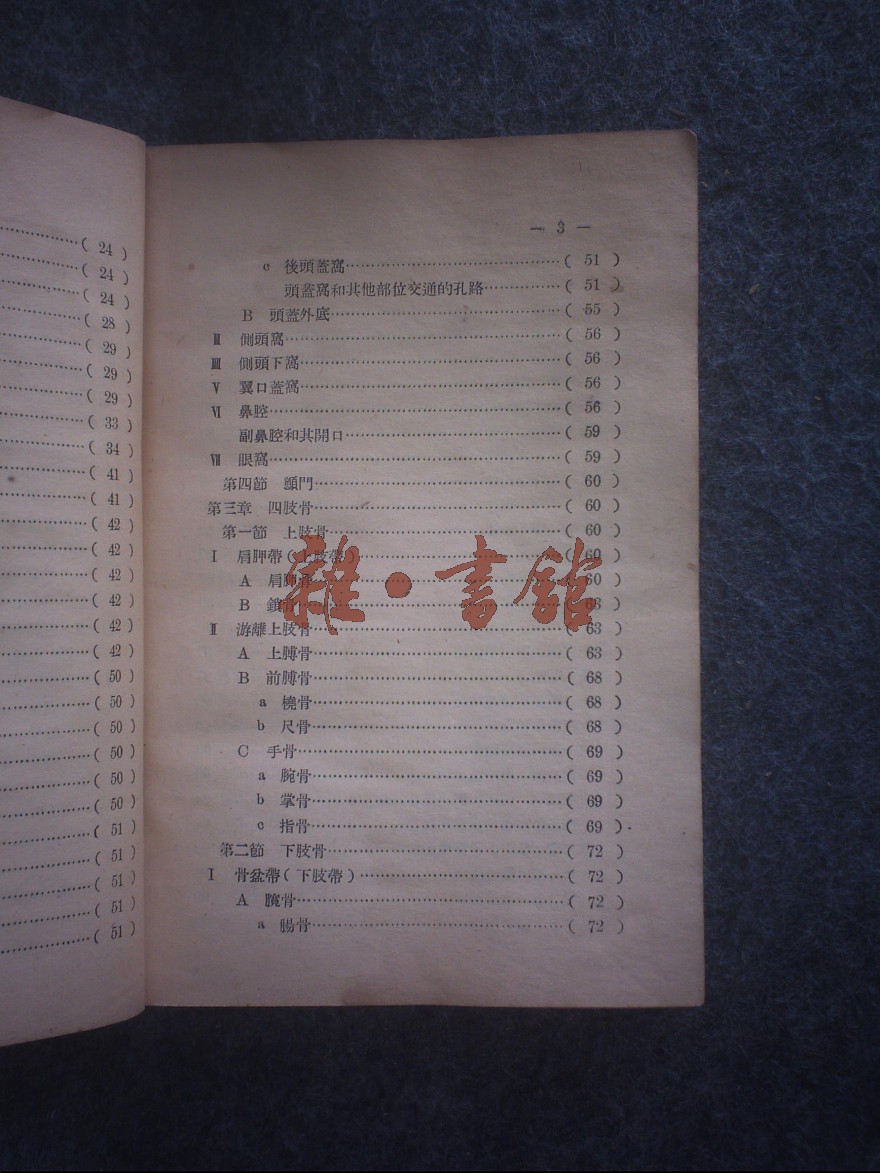 ( 24 )
( 24 )
( 24 )
( 28
( 29 )
( 29 )
( 29 )
( 33 )
( 34 )
( 41 )
( 41 )
( 42 )
( 42 )
( 42 )
( 42 )
( 42 )
( 42 )
( 50 )
( 50 )
( 50 )
( 50 )
( 50 )
( 50 )
( 51 )
( 51 )
( 51 )
( 51 )
( 51 )
— 3 —
c 後頭蓋窩……( 51 )
頭蓋窩和其他部位交通的孔路……( 51 )
B 頭蓋外底……( 55 )
Ⅱ 側頭窩……( 56 )
Ⅲ 側頭下窩……( 56 )
Ⅴ 翼口蓋窩……( 56 )
Ⅵ 鼻腔……( 56 )
副鼻腔和其開口……( 59 )
Ⅶ 眼窩……( 59 )
第四節 顖門……( 60 )
第三章 四肢骨……( 60 )
第一節 上肢骨……( 60 )
Ⅰ 肩胛帶(上肢帶)……( 60 )
A 肩胛骨……( 60 )
B 鎖骨……( 63 )
Ⅱ 游離上肢骨……( 63 )
A 上膊骨……( 63 )
B 前膊骨……( 68 )
a 橈骨……( 68 )
b 尺骨……( 68 )
C 手骨……( 69 )
a 腕骨……( 69 )
b 掌骨……( 69 )
c 指骨……( 69 )
第二節 下肢骨……( 72 )
Ⅰ 骨盆帶(下肢帶)……( 72 )
A 腕骨……( 72 )
a 腸骨……( 72 )
雜·書館